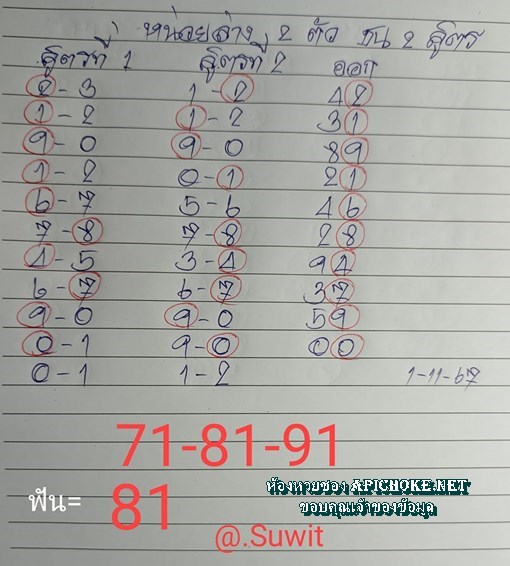 หน่วยล่าง 2 ตัว ชน 2 สูตร
สูตรที่ 1 สูตรที่ 2 ออก
2-3 1-2 42
1-2 1-2 31
9-0 9-0 89
1-2 0-1 21
6-7 5-6 46
7-8 7-8 28
4-5 3-4 94
6-7 6-7 37
9-0 9-0 59
0-1 9-0 00
0-1 1-2 1-11-67
71-81-91
ฟัน= 81
ห้องหวยซอง APICHOKE.NET
ขอบคุณเจ้าของข้อมูล
@.Suwit